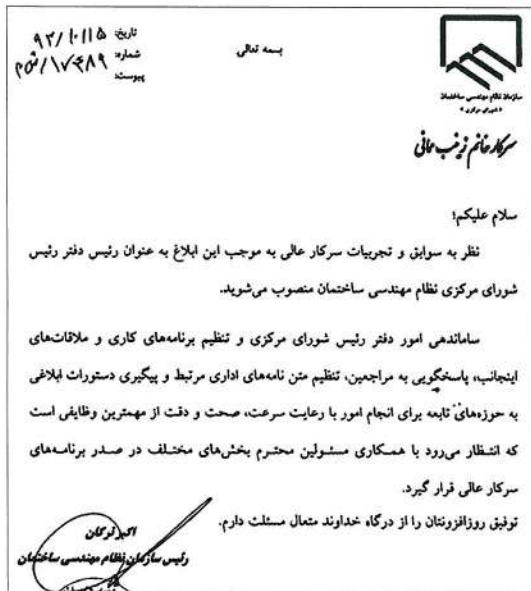 بسمه تعالی
تاریخ: ۹۲/۱۰/۱۵
شماره:
پیوست:
سازمان نظام مهندسی ساختمان
« شورای مرکزی »
سرکار خانم زینب
سلام علیکم؛
نظر به سوابق و تجربیات سرکار عالی به موجب این ابلاغ به عنوان رئیس دفتر رئیس
شورای مرکزی نظام مهندسی ساختمان منصوب می‌شوید.
ساماندهی امور دفتر رئیس شورای مرکزی و تنظیم برنامه‌های کاری و ملاقات‌های
اینجانب، پاسخگویی به مراجعین، تنظیم متن نامه‌های اداری مرتبط و پیگیری دستورات ابلاغی
به حوزه‌های تابعه برای انجام امور با رعایت سرعت، صحت و دقت از مهمترین وظایفی است
که انتظار می‌رود با همکاری مسئولین محترم بخش‌های مختلف در صدر برنامه‌های
سرکار عالی قرار گیرد.
توفیق روزافزونتان را از درگاه خداوند متعال مسئلت دارم.
اکبر ترکان
رئیس سازمان نظام مهندسی ساختمان